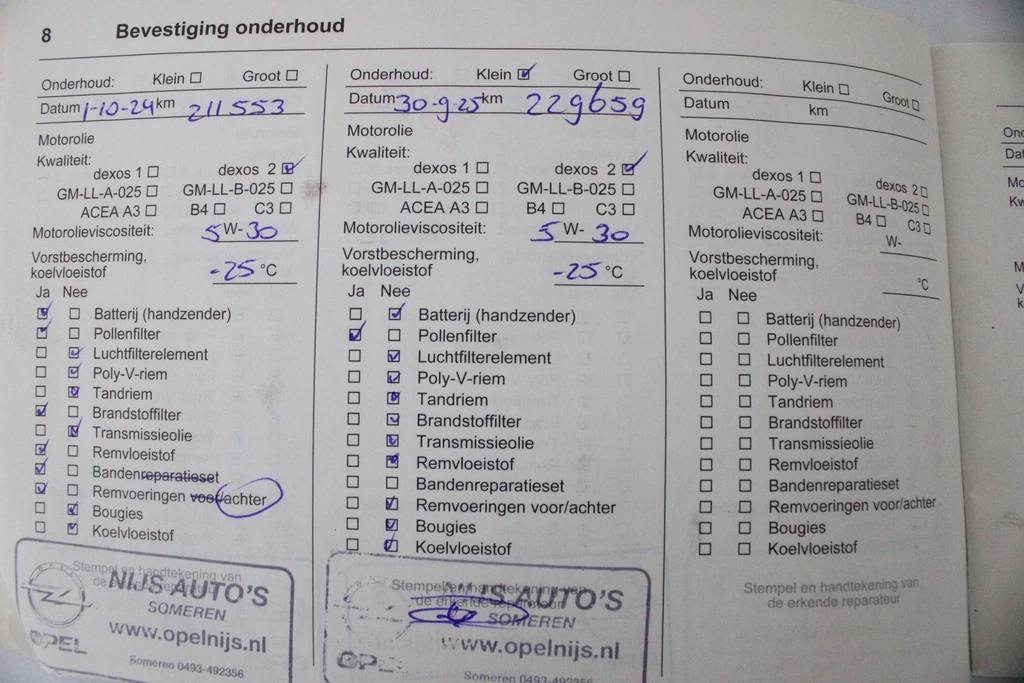 8 Bevestiging onderhoud
Onderhoud: Klein Groot
Datum 1-10-24 km 211553
Motorolie
Kwaliteit:
dexos 1 dexos 2
GM-LL-A-025 GM-LL-B-025
ACEA A3 B4 C3
Motorolieviscositeit: 5 W- 30
Vorstbescherming,
koelvloeistof -25 °C
Ja Nee
Batterij (handzender)
Pollenfilter
Luchtfilterelement
Poly-V-riem
Tandriem
Brandstoffilter
Transmissieolie
Remvloeistof
Bandenreparatieset
Remvoeringen voor/achter
Bougies
Koelvloeistof
Stempel en handtekening van
de erkende reparateur
NIJS AUTO'S
SOMEREN
www.opelnijs.nl
OPEL
Someren 0493-492356
Onderhoud: Klein Groot
Datum 30-9-25 km 229659
Motorolie
Kwaliteit:
dexos 1 dexos 2
GM-LL-A-025 GM-LL-B-025
ACEA A3 B4 C3
Motorolieviscositeit: 5 W- 30
Vorstbescherming,
koelvloeistof -25 °C
Ja Nee
Batterij (handzender)
Pollenfilter
Luchtfilterelement
Poly-V-riem
Tandriem
Brandstoffilter
Transmissieolie
Remvloeistof
Bandenreparatieset
Remvoeringen voor/achter
Bougies
Koelvloeistof
Stempel en handtekening van
de erkende reparateur
NIJS AUTO'S
SOMEREN
www.opelnijs.nl
OPEL
Someren 0493-492356
Onderhoud: Klein Groot
Datum km
Motorolie
Kwaliteit:
dexos 1 dexos 2
GM-LL-A-025 GM-LL-B-025
ACEA A3 B4 C3
Motorolieviscositeit: W-
Vorstbescherming,
koelvloeistof °C
Ja Nee
Batterij (handzender)
Pollenfilter
Luchtfilterelement
Poly-V-riem
Tandriem
Brandstoffilter
Transmissieolie
Remvloeistof
Bandenreparatieset
Remvoeringen voor/achter
Bougies
Koelvloeistof
Stempel en handtekening van
de erkende reparateur